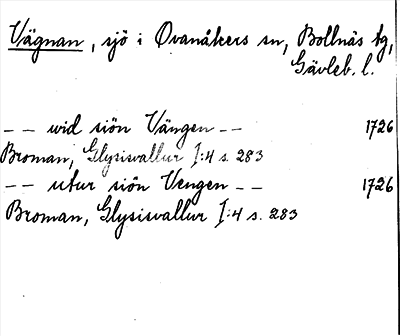 Vägnan, sjö i Ovanåkers sn, Bollnäs tg,
Gävleb. l.
-- wid siön Vängen -- 1726
Broman, Glysisvallur I:4 s. 283
-- utur siön Vengen -- 1726
Broman, Glysisvallur I:4 s. 283